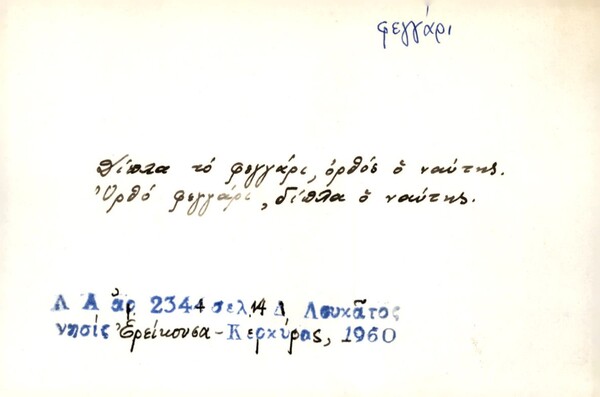 φεγγάρι
Δίπλα τό φεγγάρι, ὀρθός ὁ ναύτης.
Ὀρθό φεγγάρι, δίπλα ὁ ναύτης.
Λ Α ἀρ. 2344 σελ. 14 Δ. Λουκᾶτος
νησίς Ἐρείκουσα - Κερκύρας, 1960